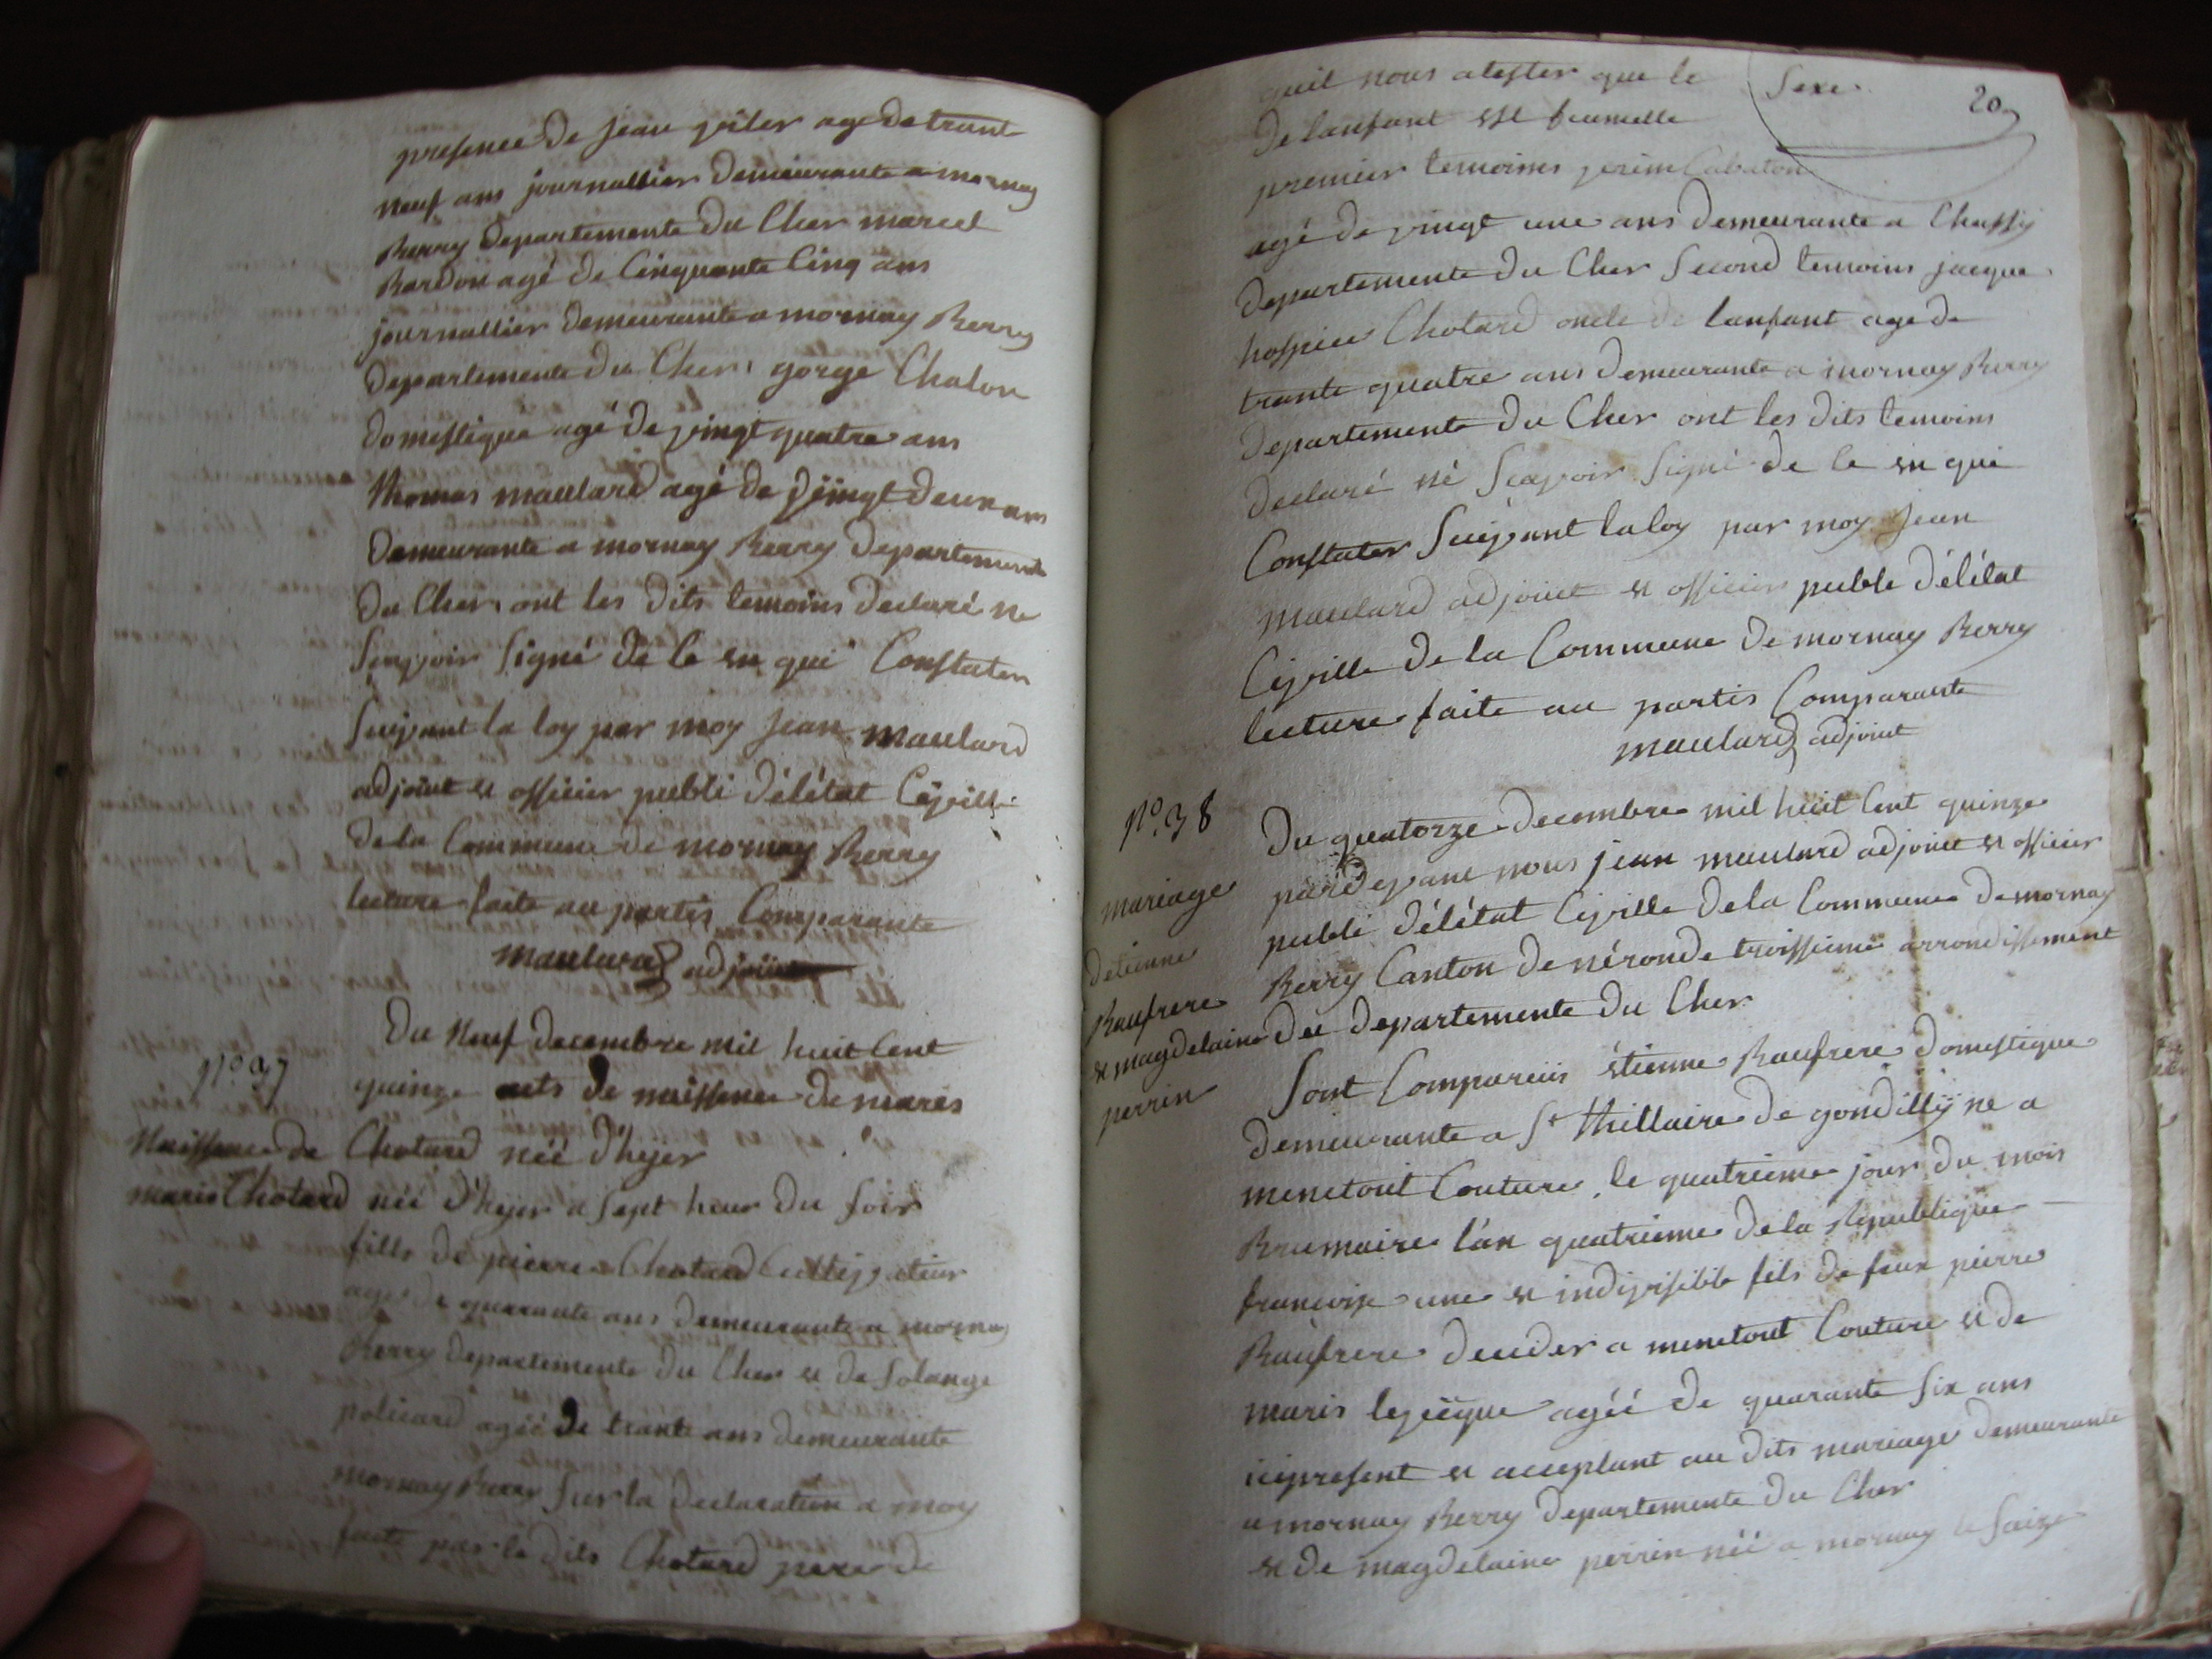 presence de jean age de trante
neuf ans journallier demeurante a mornay
Berry departemente du Cher marcel
Bardou agé de Cinquante Cinq ans
journallier demeurante a mornay Berry
departemente du Cher gorge Chalon
domestique agé de vingt quatre ans
thomas maulard agé de vingt deux ans
demeurante a mornay Berry departemente
du Cher ont les dits temoins declaré ne
sçavoir signé de le en qui Constater
suivant la loy par moy jean maulard
adjoint et officier publi d'élétat Civille
de la Commune de mornay Berry
lecture faite au partis Comparante
maulard adjoint
Du neuf decembre mil huit Cent
quinze acts de naissance de maris
Chotard néé d'hyer
née d'hyer a sept heur du soir
fills de pierre Chotard Cultivateur
agé de quarante ans demeurante a mornay
Berry departemente du Cher et de Solange
policard agéé de trante ans demeurante
mornay Berry sur la declaration a moy
faite par le dits Chotard pere de
Naissance de
maris Chotard
quil nous atester que le sexe
20
de lanfant est fumelle
premier temoines Cabaton
agé de vingt une ans demeurante a Chassy
departemente du Cher second temoins jacque
hospice Chotard oncle de lanfant age de
trante quatre ans demeurante a mornay Berry
departemente du Cher ont les dits temoins
declaré né sçavoir signé de le en qui
Constater suivant la loy par moy jean
maulard adjoint et officier publi d'élétat
Civille de la Commune de mornay Berry
lecture faite au partis Comparante
maulard adjoint
No. 38
mariage
detienne
Baufrere
et magdelaine
perrin
Du quatorze decembre mil huit Cent quinze
pardevant nous jean maulard adjoint et officier
publi d'élétat Civille de la Commune de mornay
Berry Canton de néronde troissieme arrondissement
du departemente du Cher
Sont Comparuis étienne Baufrere domestique
demeurante a St thillaire de gondilly ne a
menetout Couture le quatrieme jour du mois
Brumaire l'an quatrieme de la Republique
françoise une et indivisible fils de feux pierre
Baufrere deceder a menetout Couture et de
maris leveique agéé de quarante six ans
icipresent et acceptant au dits mariage demeurante
a mornay Berry departemente du Cher
et de magdelaine perrin néé a mornay le saize